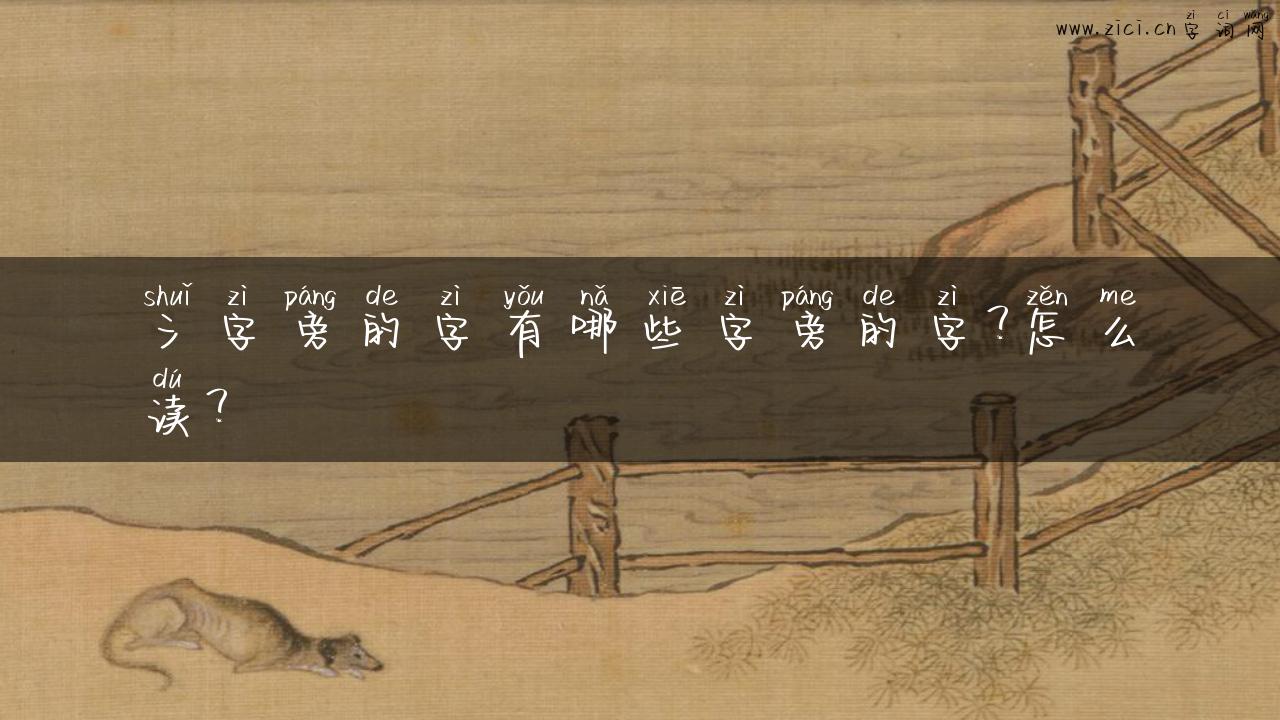 zì cí wǎng
www.zici.cn 字词网
shuǐ zì páng de zì yǒu nǎ xiē zì páng de zì zěn me
氵字旁的字有哪些字旁的字?怎么
dú
读?